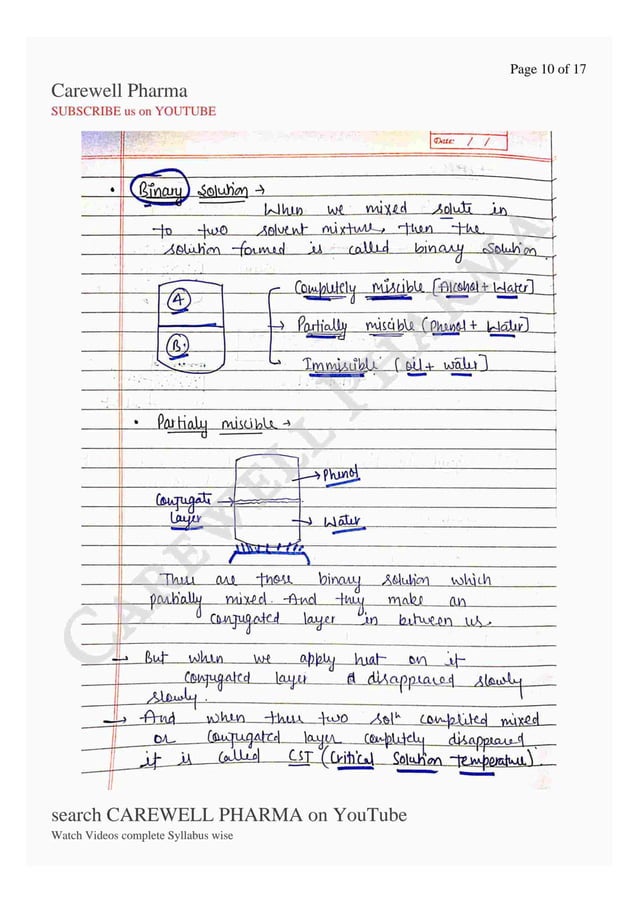 Page 10 of 17
Carewell Pharma
SUBSCRIBE us on YOUTUBE
Date: / /
• Binary solution →
When we mixed solute in
to two solvent mixture, then the
solution formed is called binary solution.
Completely miscible [Alcohol + Water]
A
→ Partially miscible (Phenol + Water]
B.
Immiscible [oil + water]
• Partialy miscible →
→ Phenol
Conjugate →
layer
→ Water
There are those binary solution which
partially mixed. And they make an
conjugated layer in between us.
→ But when we apply heat on it
conjugated layer disappeared slowly
slowly.
→ And when these two solⁿ complited mixed
or conjugated layer completly disappeared
it is called CST (Critical Solution temperature)
CAREWELL PHARMA
search CAREWELL PHARMA on YouTube
Watch Videos complete Syllabus wise